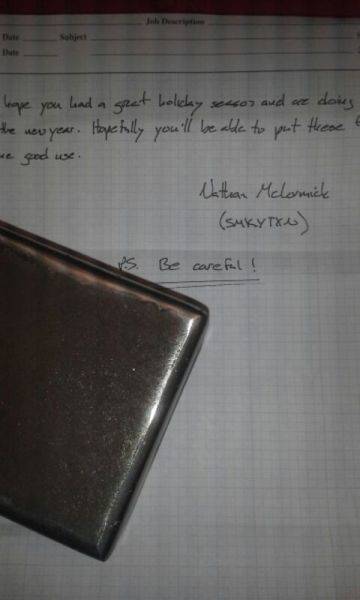 Job Description
Date Subject
Date
hope you had a great holiday season and are doing
the new year. Hopefully you'll be able to put these
good use.
Nathan McCormick
(SMKYTXN)
P.S. Be careful!